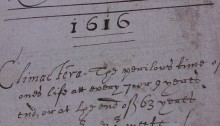 1616
Climactera. The perilous time of
ones life att every 7 or 9 yeares
end, or at the end off 63 yeares